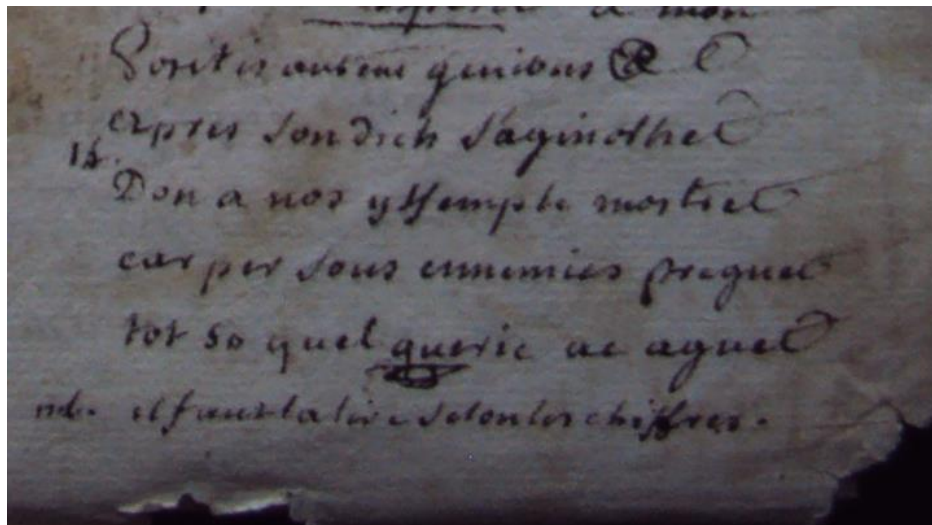 a mon
Portet is
apres son dich s'aginolhet
14.
Don a nos yssemple mostret
car per sous ennemics preguet
tot so quel queric ac aguet
nb. il faut la lire selon les chiffres.